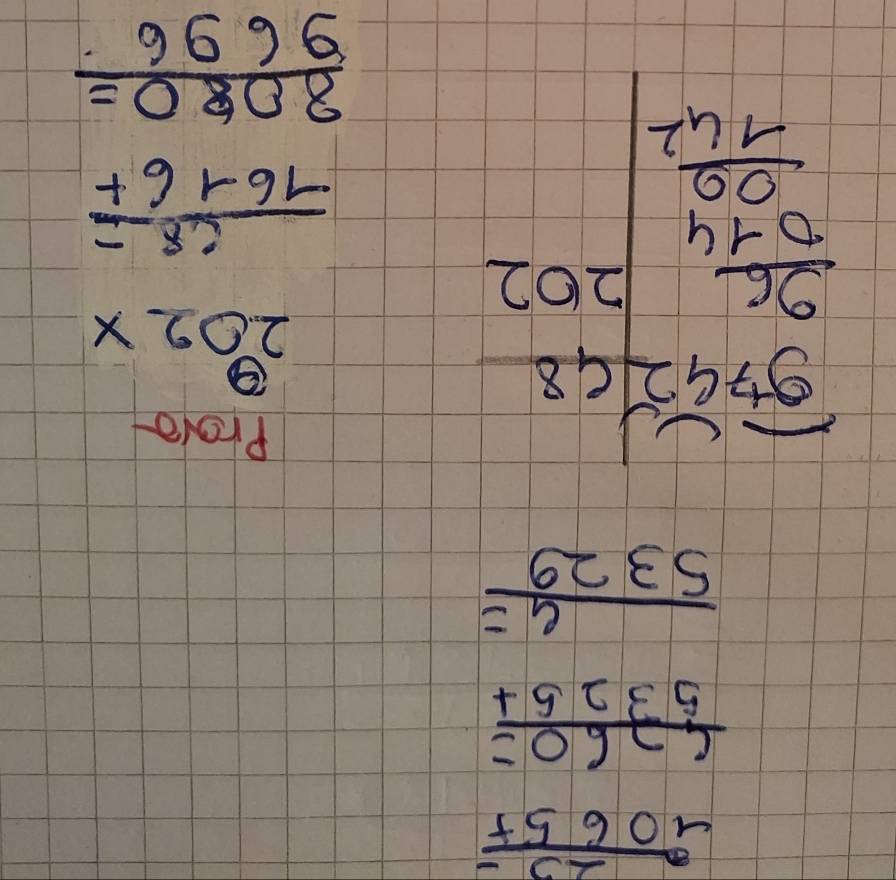 1065+
4260=
5325+
4=
5329
9742 48
96 202
014
00
142
Prova
202 x
48 =
1616+
8080=
9696